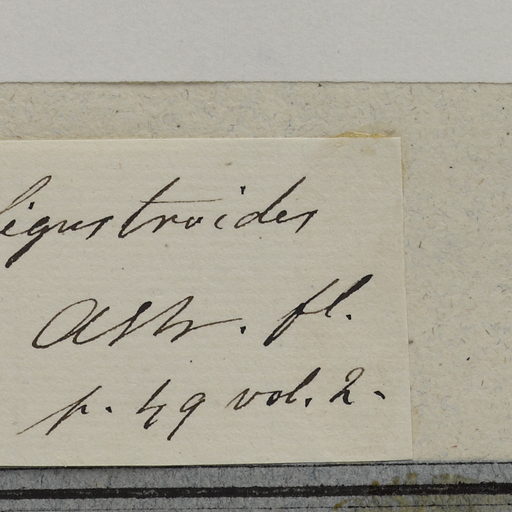 ligustroides
Astr. fl.
p. 49 vol. 2.